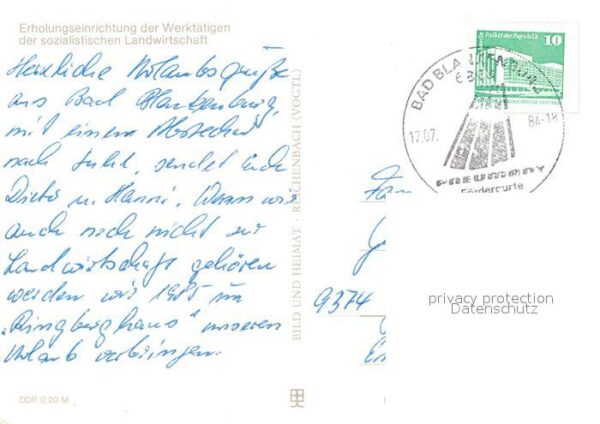 Erholungseinrichtung der Werktätigen
der sozialistischen Landwirtschaft
Herzliche Urlaubsgrüße
aus Bad Blankenburg,
mit einem Abstecher
nach Suhl, sendet Euch
Dieter u. Hanni. Wenn wir
auch noch nicht zur
Landwirtschaft gehören
werden wir 1985 im
"Ringberghaus" unseren
Urlaub verbringen.
DDR 0,20 M
BILD UND HEIMAT · REICHENBACH (VOGTL)
Palast der Republik
10
BAD BLANKENBURG
17.07.
84-18
PNEUMANT
Fördergurte
Fam
9374
privacy protection
Datenschutz